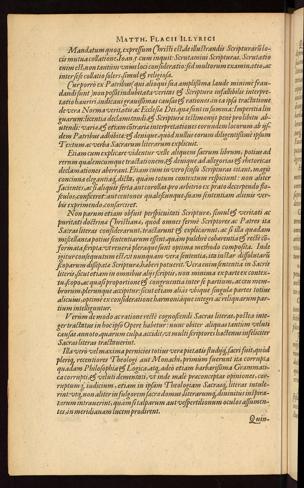 MATTH. FLACII ILLYRICI
Mandatum quoq; expressum Christi est de illustrandis Scripturæ suis lo-
cis mutua collatione, Ioan. 5. cum inquit: Scrutamini Scripturas. Scrutatio
enim est, non tantùm unius loci consideratio: sed multorum examinatio, ac
inter sese collatio solers simul & religiosa.
Cur porrò ex Patribus, qui aliqui sua amplissima laude minimè frau-
dandi sunt, non possit indubitata veritas & Scripturæ infallibilis interpre-
tatio hauriri,
de vera Norma veritatis ac Ecclesiæ Dei,
guarum: licentia declamitandi, & Scripturæ testimonijs penè pro libitu ab-
utendi: varia & etiam contraria interpretationes eorundem locorum ab ijs-
dem Patribus adhibitæ & denique, quòd nullus eorum diligenter suis ipsum
Textum ac verba Sacrarum literarum explicuit.
Etiam cum explicare videntur velle aliquem sacrum librum, potius ad
rerum qualemcumque tractationem, & denique ad allegorias & rhetoricas
declamationes aberrant. Etiam cum in vero sensu Scripturas citant, magis
concinna elegantiaq; dictis, quàm totum contextum respiciunt: non aliter
facientes, ac si aliquis serta aut corollas pro arbitrio ex prato decerpendo flo-
sculos, conficeret: aut centones qualescunque, suam sententiam alienis ver-
bis exprimendo, conscriberet.
Non parum etiam obfuit perspicuitati Scripturæ, simul & veritati ac
puritati doctrinæ Christianæ, quòd omnes fermè Scriptores ac Patres ita
Sacras literas considerarunt, tractarunt & explicarunt, ac si illa quædam
miscellanea potius sententiarum essent,
formata scripta:
igitur consequutum est,
Verissima enim sententia in Sacris
literis, sicut etiam in omnibus alijs scriptis, non minima ex parte ex contex-
tu, scopo, ac quasi proportione & congruentia inter se partium, ac ceu mem-
brorum plerunque accipitur: sicut etiam aliàs ubique singulæ partes totius
alicuius, optimè ex consideratione harmoniaque integri ac reliquarum par-
tium intelliguntur.
Verùm de modo ac ratione rectè cognoscendi Sacras literas, postea inte-
ger tractatus in hoc ipso Opere habetur: nunc obiter aliquas tantùm veluti
causas annoto, quarum culpa accidit, ut multi scriptores hactenus infeliciter
Sacras literas tractaverint.
Illa verò vel maxima pernicies totius veræ pietatis studijs, sacris fuit, quòd
pleriq; recentiores Theologi aut Monachi, primùm fuerint ita corrupta
quadam Philosophia & Logica, atq; adeò etiam barbarissima Grammati-
ca corrupti, & veluti dementati, ut inde malè præconceptas opiniones, cor-
ruptum q; iudicium, etiam in ipsam Theologiam Sacrasq; literas intule-
rint: utq; non aliter in fulgorem sacro domus literarum q; divinitus inspira-
torum intraverint, quàm si talparum aut vespertilionum oculos assumen-
tes, in meridianam lucem prodirent.
Quin-